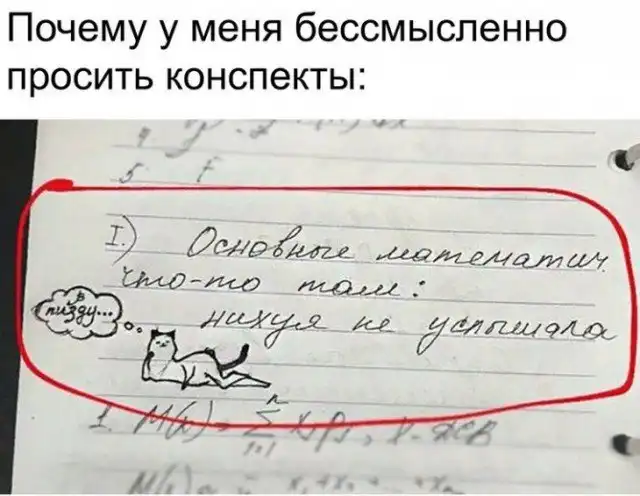 Почему у меня бессмысленно
просить конспекты:
5 f
I.) Основные математич.
что-то там:
в
пизду...
нихуя не услышала
1. M(x) = Σ xᵢpᵢ, X - ДСВ
n
i=1